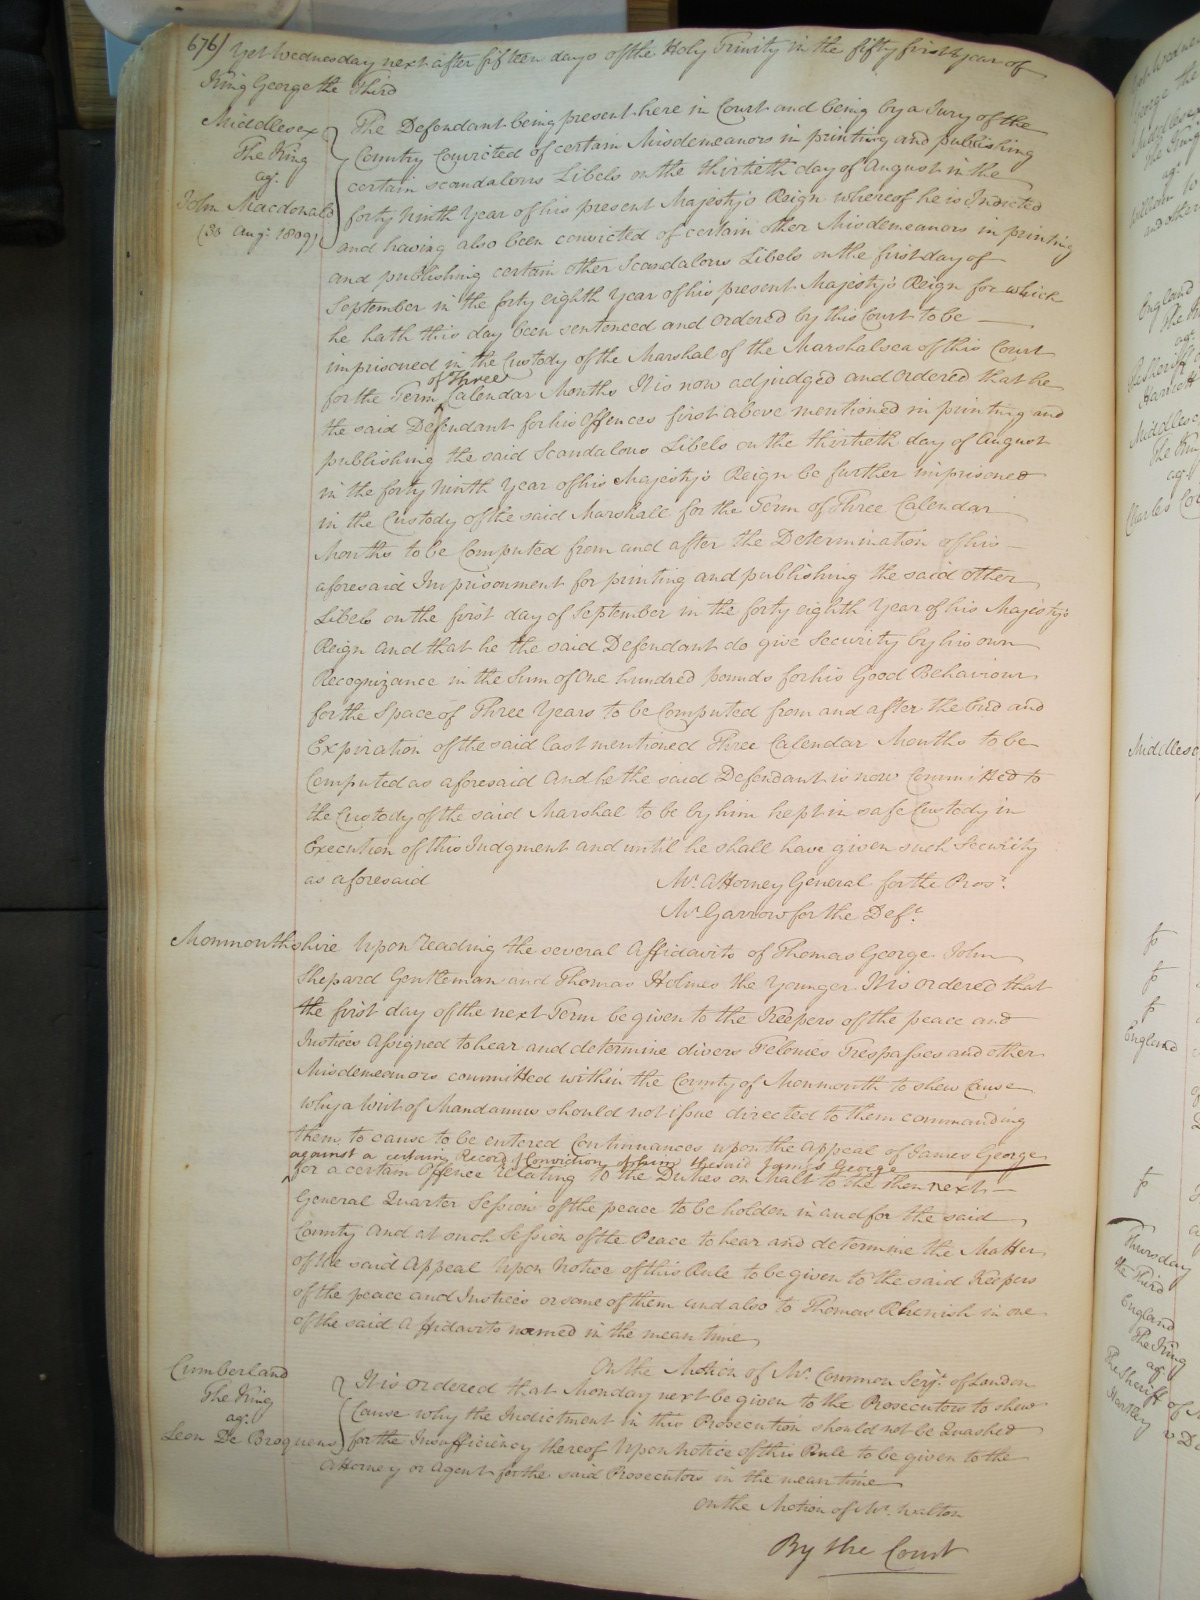 676) Yet Wednesday next after fifteen days of the Holy Trinity in the fifty first year of
King George the Third
Middlesex
The King
agt.
John Macdonald
(30 Augt. 1809)
The Defendant being present here in Court and being by a Jury of the
Country Convicted of certain Misdemeanors in printing and publishing
certain scandalous Libels on the thirtieth day of August in the
forty Ninth Year of his present Majesty's Reign whereof he is Indicted
and having also been convicted of certain other Misdemeanors in printing
and publishing certain other Scandalous Libels on the first day of
September in the forty eighth Year of his present Majesty's Reign for which
he hath this day been sentenced and Ordered by this Court to be
imprisoned in the Custody of the Marshal of the Marshalsea of this Court
of Three
for the Term Calendar Months It is now adjudged and Ordered that he
the said Defendant for his Offences first above mentioned in printing and
publishing the said Scandalous Libels on the thirtieth day of August
in the forty Ninth Year of his Majesty's Reign be further imprisoned
in the Custody of the said Marshall for the Term of Three Calendar
Months to be Computed from and after the Determination of his
aforesaid Imprisonment for printing and publishing the said other
Libels on the first day of September in the forty eighth Year of his Majesty's
Reign And that he the said Defendant do give Security by his own
Recognizance in the Sum of One hundred pounds for his Good Behaviour
for the Space of Three Years to be Computed from and after the End and
Expiration of the said last mentioned Three Calendar Months to be
Computed as aforesaid And he the said Defendant is now Committed to
the Custody of the said Marshal to be by him kept in safe Custody in
Execution of this Judgment and until he shall have given such Security
as aforesaid
Mr. Attorney General for the Prosr.
Mr. Garrow for the Deft.
Monmouthshire Upon reading the several Affidavits of Thomas George John
Shepard Gentleman and Thomas Holmes the Younger It is ordered that
the first day of the next Term be given to the Keepers of the peace and
Justices Assigned to hear and determine divers Felonies Trespasses and other
Misdemeanors committed within the County of Monmouth to shew Cause
why a Writ of Mandamus should not issue directed to them commanding
them to cause to be entered Continuances upon the Appeal of James George
against a certain Record of Conviction of him the said James George
for a certain Offence relating to the Duties on Malt to the then next
General Quarter Session of the peace to be holden in and for the said
County And at such Session of the Peace to hear and determine the Matter
of the said Appeal Upon Notice of this Rule to be given to the said Keepers
of the peace and Justices or some of them and also to Thomas Rhenish in one
of the said Affidavits named in the mean time
On the Motion of Mr. Common Serjt. of London
Cumberland
The King
agt.
Leon De Broquens
It is ordered that Monday next be given to the Prosecutors to shew
Cause why the Indictment in this Prosecution should not be Quashed
for the Insufficiency thereof Upon Notice of this Rule to be given to the
Attorney or Agent for the said Prosecutors in the mean time
On the Motion of Mr. Walton
By the Court
Middlesex
England
Thursday
the Third
England
The King
agt.
The Sheriff of
Hartley